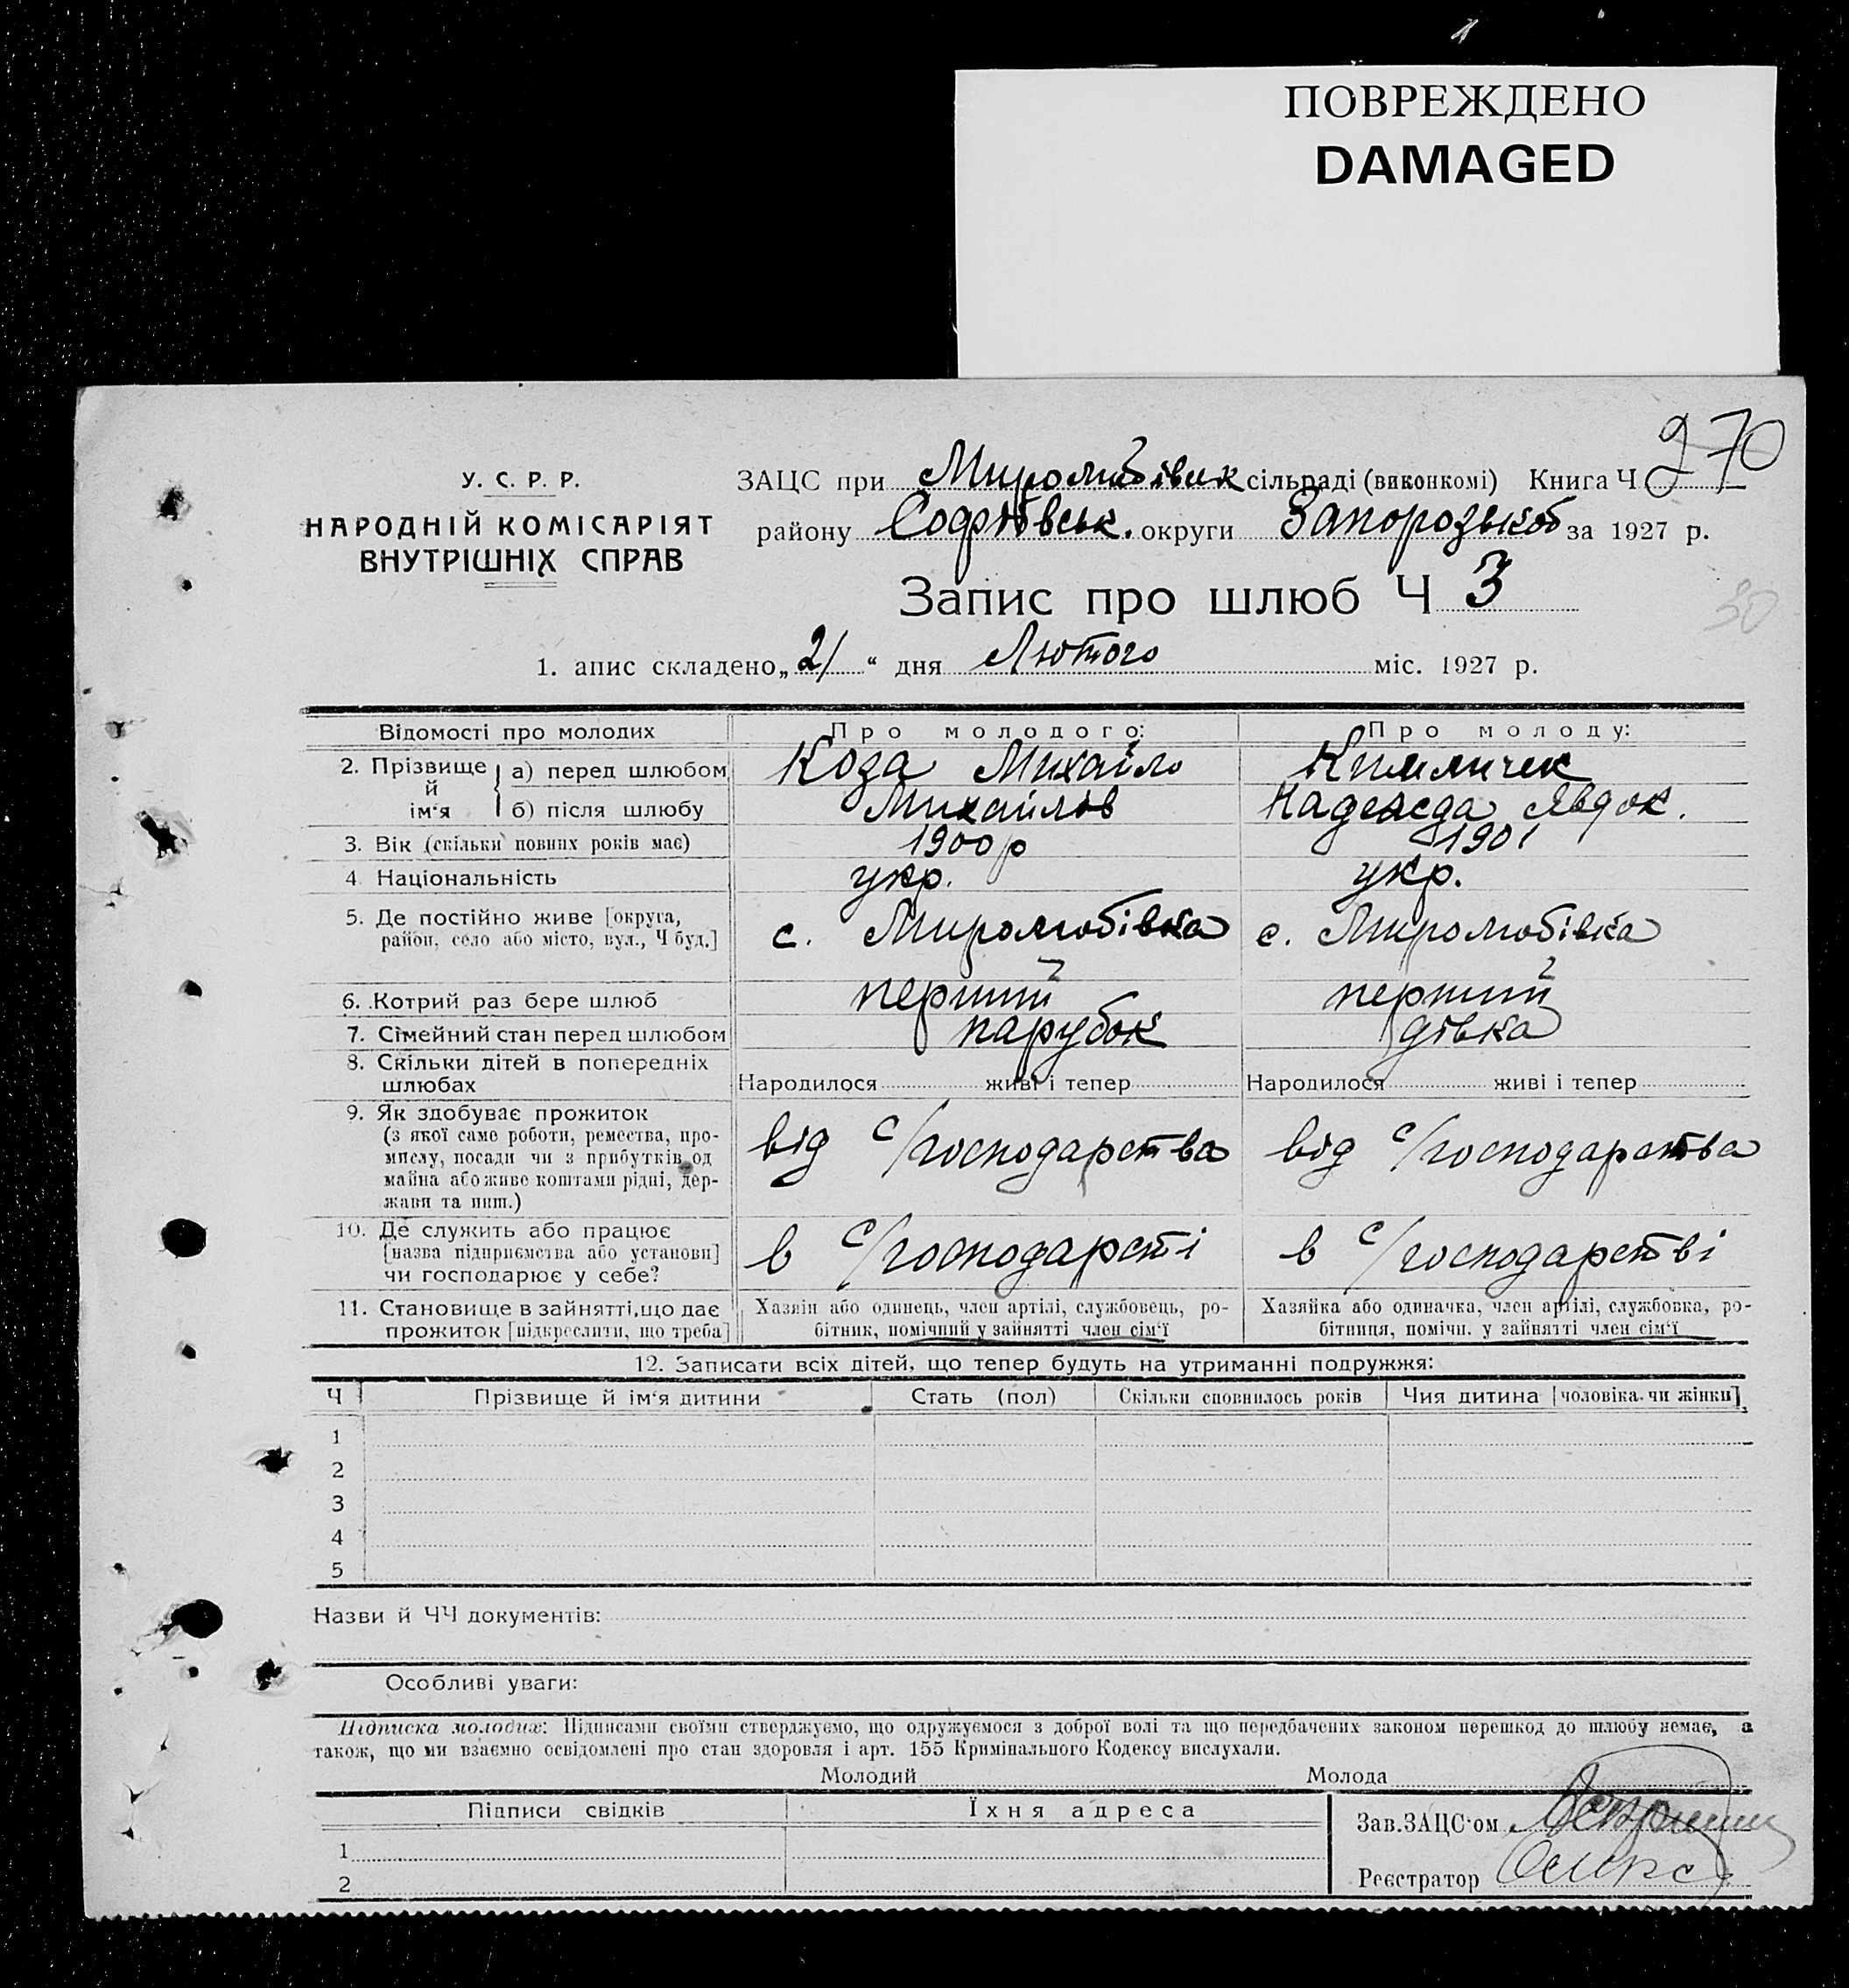 ПОВРЕЖДЕНО
DAMAGED
270
У. С. Р. Р.
НАРОДНІЙ КОМІСАРІЯТ
ВНУТРІШНІХ СПРАВ
ЗАЦС при Миролюбівск сільраді (виконкомі) Книга Ч
району Софіївськ. округи Запорозької за 1927 р.
Запис про шлюб Ч 3
30
1. апис складено „21“ дня Лютого міс. 1927 р.
Відомості про молодих Про молодого: Про молоду:
2. Прізвище й ім‘я { а) перед шлюбом Коза Михайло
б) після шлюбу Михайлов Надежда Явдок.
3. Вік (скільки повних років має) 1900 р 1901
4 Національність укр. укр.
5. Де постійно живе [округа, район, село або місто, вул., Ч буд.] с. Миролюбівка с. Миролюбівка
6. Котрий раз бере шлюб перший перший
7. Сімейний стан перед шлюбом парубок дівка
8. Скільки дітей в попередніх шлюбах Народилося живі і тепер Народилося живі і тепер
9. Як здобуває прожиток
(з якої саме роботи, ремества, про-
мислу, посади чи з прибутків од
майна або живе коштами рідні, дер-
жави та инш.)
від с/господарства від с/господарства
10. Де служить або працює
[назва підприємства або установи]
чи господарює у себе?
в с/господарсті в с/господарстві
11. Становище в зайнятті, що дає
прожиток [підкреслити, що треба]
Хазяїн або одинець, член артілі, службовець, ро-
бітник, помічний у зайнятті член сім‘ї
Хазяйка або одиначка, член артілі, службовка, ро-
бітниця, помічн. у зайнятті член сім‘ї
12. Записати всіх дітей, що тепер будуть на утриманні подружжя:
Ч Прізвище й ім‘я дитини Стать (пол) Скільки сповнилось років Чия дитина [чоловіка чи жінки]
1
2
3
4
5
Назви й ЧЧ документів:
Особливі уваги:
Підписка молодих: Підписами своїми стверджуємо, що одружуємося з доброї волі та що передбачених законом перешкод до шлюбу немає, а
також, що ми взаємно освідомлені про стан здоровля і арт. 155 Кримінального Кодексу вислухали.
Молодий Молода
Підписи свідків Їхня адреса
1
2
Зав. ЗАЦС‘ом
Реєстратор